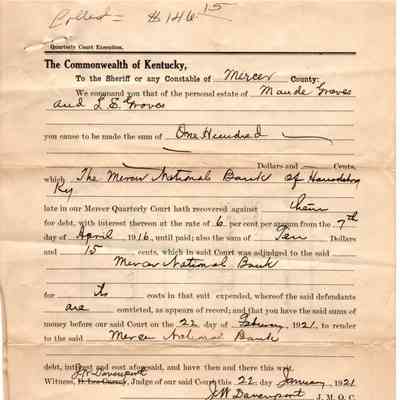 Collect = $146.15
Quarterly Court Execution.
The Commonwealth of Kentucky,
To the Sheriff or any Constable of Mercer County:
We command you that of the personal estate of Maude Graves
and L E Groves
you cause to be made the sum of One Hundred
Dollars and Cents,
which The Mercer National Bank of Harrodsburg
Ky
late in our Mercer Quarterly Court hath recovered against them
for debt, with interest thereon at the rate of 6 per cent per annum from the 7th
day of April 1916, until paid; also the sum of Ten Dollars
and 15 cents, which in said Court was adjudged to the said
Mercer National Bank
for its costs in that suit expended, whereof the said defendants
are convicted, as appears of record; and that you have the said sums of
money before our said Court on the 22 day of February, 1921, to render
to the said Mercer National Bank
debt, interest and cost aforesaid, and have then and there this writ.
J W Davenport
Witness, Judge of our said Court this 22 day January 1921
J W Davenport J. M. Q. C.